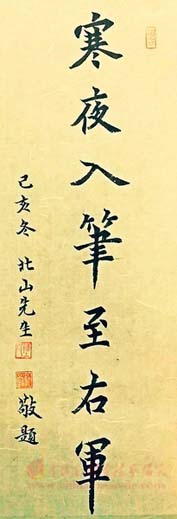 寒夜入筆至右軍
己亥冬 北山先生 敬題